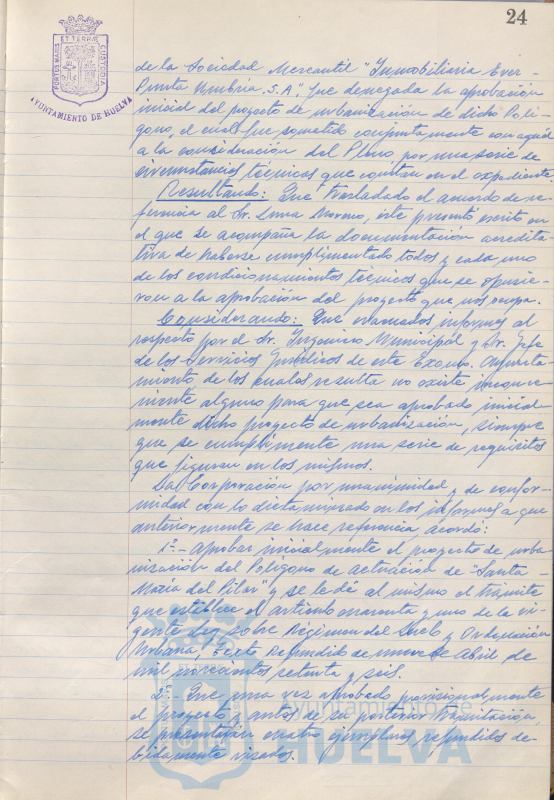 24
PORTUS MARIS ET TERRAE CUSTODIA
AYUNTAMIENTO DE HUELVA
de la Sociedad Mercantil "Inmobiliaria Ever-
Punta Umbría S.A." fue denegada la aprobación
inicial del proyecto de urbanización de dicho Polí-
gono, el cual fue sometido conjuntamente con aquél
a la consideración del Pleno, por una serie de
circunstancias técnicas que constan en el expediente.
Resultando: Que trasladado el acuerdo de re-
ferencia al Sr. Lima Moreno, éste presentó escrito en
el que se acompaña la documentación acredita-
tiva de haberse cumplimentado todos y cada uno
de los condicionamientos técnicos que se opusie-
ron a la aprobación del proyecto que nos ocupa.
Considerando: Que evacuados informes al
respecto por el Sr. Ingeniero Municipal y Sr. Jefe
de los Servicios Jurídicos de este Excmo. Ayunta-
miento, de los cuales resulta no existe inconve-
niente alguno para que sea aprobado inicial-
mente dicho proyecto de urbanización, siempre
que se cumplimente una serie de requisitos
que figuran en los mismos.
La Corporación por unanimidad y de confor-
midad con lo dictaminado en los informes a que
anteriormente se hace referencia, acordó:
1º.- Aprobar inicialmente el proyecto de urba-
nización del Polígono de Actuación de "Santa
María del Pilar" y se le dé al mismo el trámite
que establece el artículo cuarenta y uno de la vi-
gente Ley sobre Régimen del Suelo y Ordenación
Urbana, Texto Refundido de nueve de Abril de
mil novecientos setenta y seis.
2º.- Que una vez aprobado provisionalmente
el proyecto y antes de su posterior tramitación,
se presentarán cuatro ejemplares refundidos de-
bidamente visados.
Ayuntamiento de
HUELVA